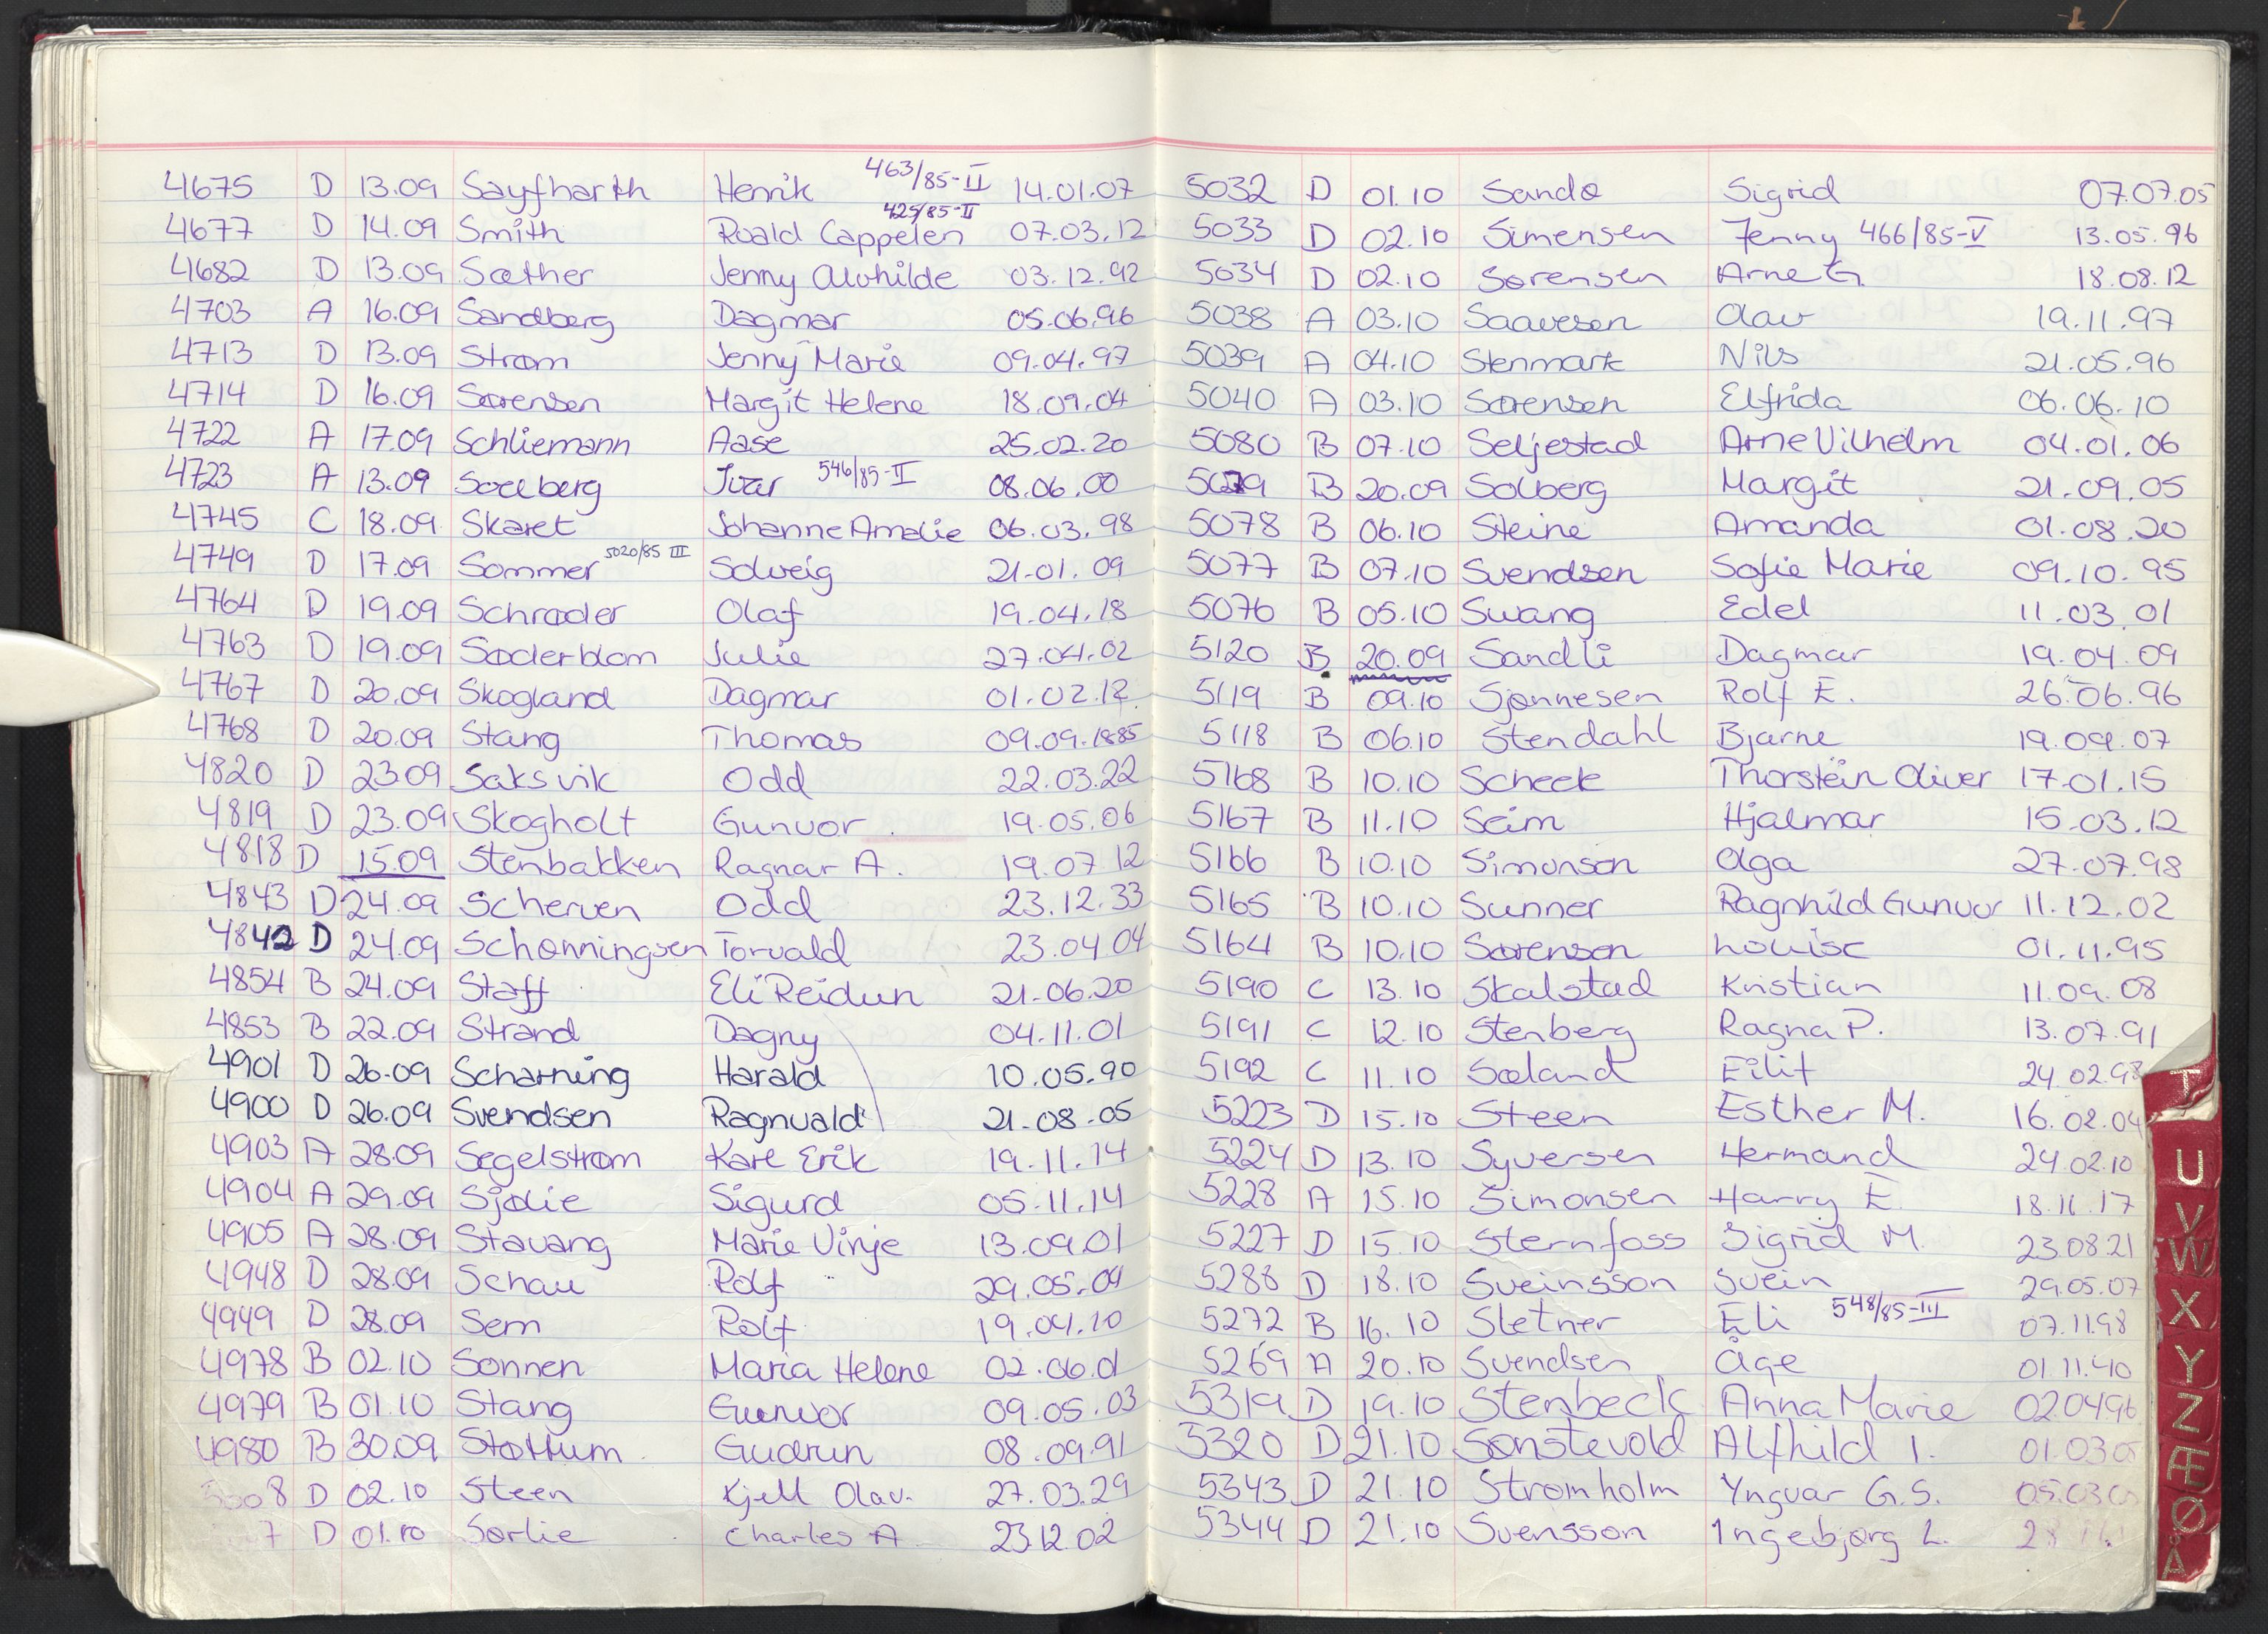 4675 D 13.09 Sayfharth Henrik 463/85-II 14.01.07
4677 D 14.09 Smith Roald Cappelen 425/85-II 07.03.12
4682 D 13.09 Sæther Jenny Alvhilde 03.12.92
4703 A 16.09 Sandberg Dagmar 05.06.96
4713 D 13.09 Strøm Jenny Marie 09.04.97
4714 D 16.09 Sørensen Margit Helene 18.09.04
4722 A 17.09 Schliemann Aase 25.02.20
4723 A 13.09 Soelberg Ivar 546/85-II 08.06.00
4745 C 18.09 Skaret Johanne Amalie 06.03.98
4749 D 17.09 Sommer 5020/85 III Solveig 21.01.09
4764 D 19.09 Schrøder Olaf 19.04.18
4763 D 19.09 Søderblom Julie 27.04.02
4767 D 20.09 Skogland Dagmar 01.02.12
4768 D 20.09 Stang Thomas 09.09.1885
4820 D 23.09 Saksvik Odd 22.03.22
4819 D 23.09 Skogholt Gunvor 19.05.06
4818 D 15.09 Stenbakken Ragnar A. 19.07.12
4843 D 24.09 Scherven Odd 23.12.33
4842 D 24.09 Schønningsen Torvald 23.04.04
4854 B 24.09 Staff Eli Reidun 21.06.20
4853 B 22.09 Strand Dagny 04.11.01
4901 D 26.09 Scharning Harald 10.05.90
4900 D 26.09 Svendsen Ragnvald 21.08.05
4903 A 28.09 Segelstrøm Kåre Erik 19.11.14
4904 A 29.09 Sjølie Sigurd 05.11.14
4905 A 28.09 Stavang Marie Vinje 13.09.01
4948 D 28.09 Schau Rolf 29.05.09
4949 D 28.09 Sem Rolf 19.04.10
4978 B 02.10 Sonnen Maria Helene 02.06.01
4979 B 01.10 Stang Gunvor 09.05.03
4980 B 30.09 Støttum Gudrun 08.09.91
8 D 02.10 Steen Kjell Olav. 27.03.29
7 D 01.10 Sørlie Charles A 23.12.02
5032 D 01.10 Sandø Sigrid 07.07.05
5033 D 02.10 Simensen Jenny 466/85-V 13.05.96
5034 D 02.10 Sørensen Arne G. 18.08.12
5038 A 03.10 Saavesen Olav 19.11.97
5039 A 04.10 Stenmark Nils 21.05.96
5040 A 03.10 Sørensen Elfrida 06.06.10
5080 B 07.10 Seljestad Arne Vilhelm 04.01.06
5079 B 20.09 Solberg Margit 21.09.05
5078 B 06.10 Steine Amanda 01.08.20
5077 B 07.10 Svendsen Sofie Marie 09.10.95
5076 B 05.10 Swang Edel 11.03.01
5120 B 20.09 Sandli Dagmar 19.04.09
5119 B 09.10 Sjønnesen Rolf E. 26.06.96
5118 B 06.10 Stendahl Bjarne 19.09.07
5168 B 10.10 Scheek Thorstein Oliver 17.01.15
5167 B 11.10 Seim Hjalmar 15.03.12
5166 B 10.10 Simonson Olga 27.07.98
5165 B 10.10 Sunner Ragnhild Gunvor 11.12.02
5164 B 10.10 Sørensen Louise 01.11.95
5190 C 13.10 Skalstad Kristian 11.09.08
5191 C 12.10 Stenberg Ragna P. 13.07.91
5192 C 11.10 Sæland Eilif 24.02.98
5223 D 15.10 Steen Esther M. 16.02.04
5224 D 13.10 Syversen Hermand 24.02.10
5228 A 15.10 Simonsen Harry E. 18.11.17
5227 D 15.10 Sternfoss Sigrid M. 23.08.21
5288 D 18.10 Sveinsson Svein 29.05.07
5272 B 16.10 Sletner Eli 548/85-III 07.11.98
5269 A 20.10 Svendsen Åge 01.11.40
5319 D 19.10 Stenbeck Anna Marie 02.04.96
5320 D 21.10 Sønstevold Alfhild I. 01.03
5343 D 21.10 Strømholm Yngvar G.S. 05.03
5344 D 21.10 Svensson Ingebjørg L.
T
U
V
W
X
Y
Z
Æ
Ø
Å